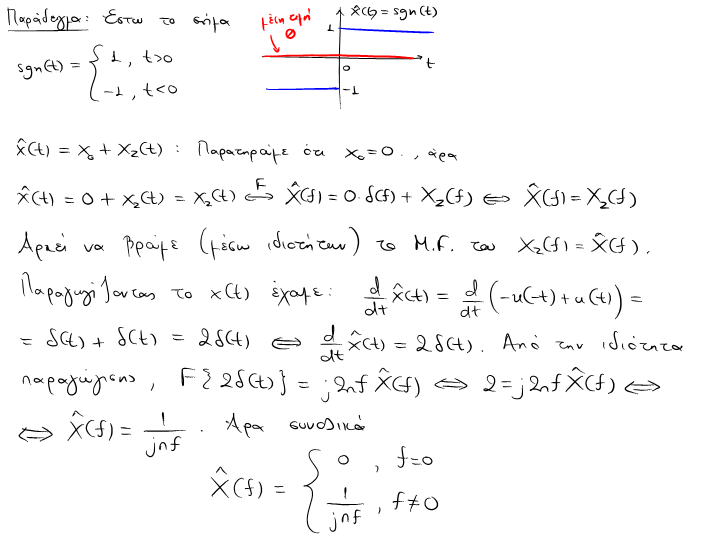 Παράδειγμα: Έστω το σήμα
sgn(t) = { 1 , t>0
-1 , t<0
μέση τιμή
0
x̂(t) = sgn(t)
1
0
t
-1
x̂(t) = x₀ + x₂(t) : Παρατηρούμε ότι x₀ = 0 . , άρα
x̂(t) = 0 + x₂(t) = x₂(t) ⟺ᶠ X̂(f) = 0·δ(f) + X₂(f) ⟺ X̂(f) = X₂(f)
Αρκεί να βρούμε (μέσω ιδιοτήτων) το Μ.F. του X₂(f) = X̂(f).
Παραγωγίζοντας το x(t) έχουμε: d/dt x̂(t) = d/dt (-u(-t) + u(t)) =
= δ(t) + δ(t) = 2δ(t) ⟺ d/dt x̂(t) = 2δ(t). Από την ιδιότητα
παραγώγισης, F{2δ(t)} = j2πf X̂(f) ⟺ 2 = j2πf X̂(f) ⟺
⟺ X̂(f) = 1/jπf . Άρα συνολικά
X̂(f) = { 0 , f=0
1/jπf , f≠0